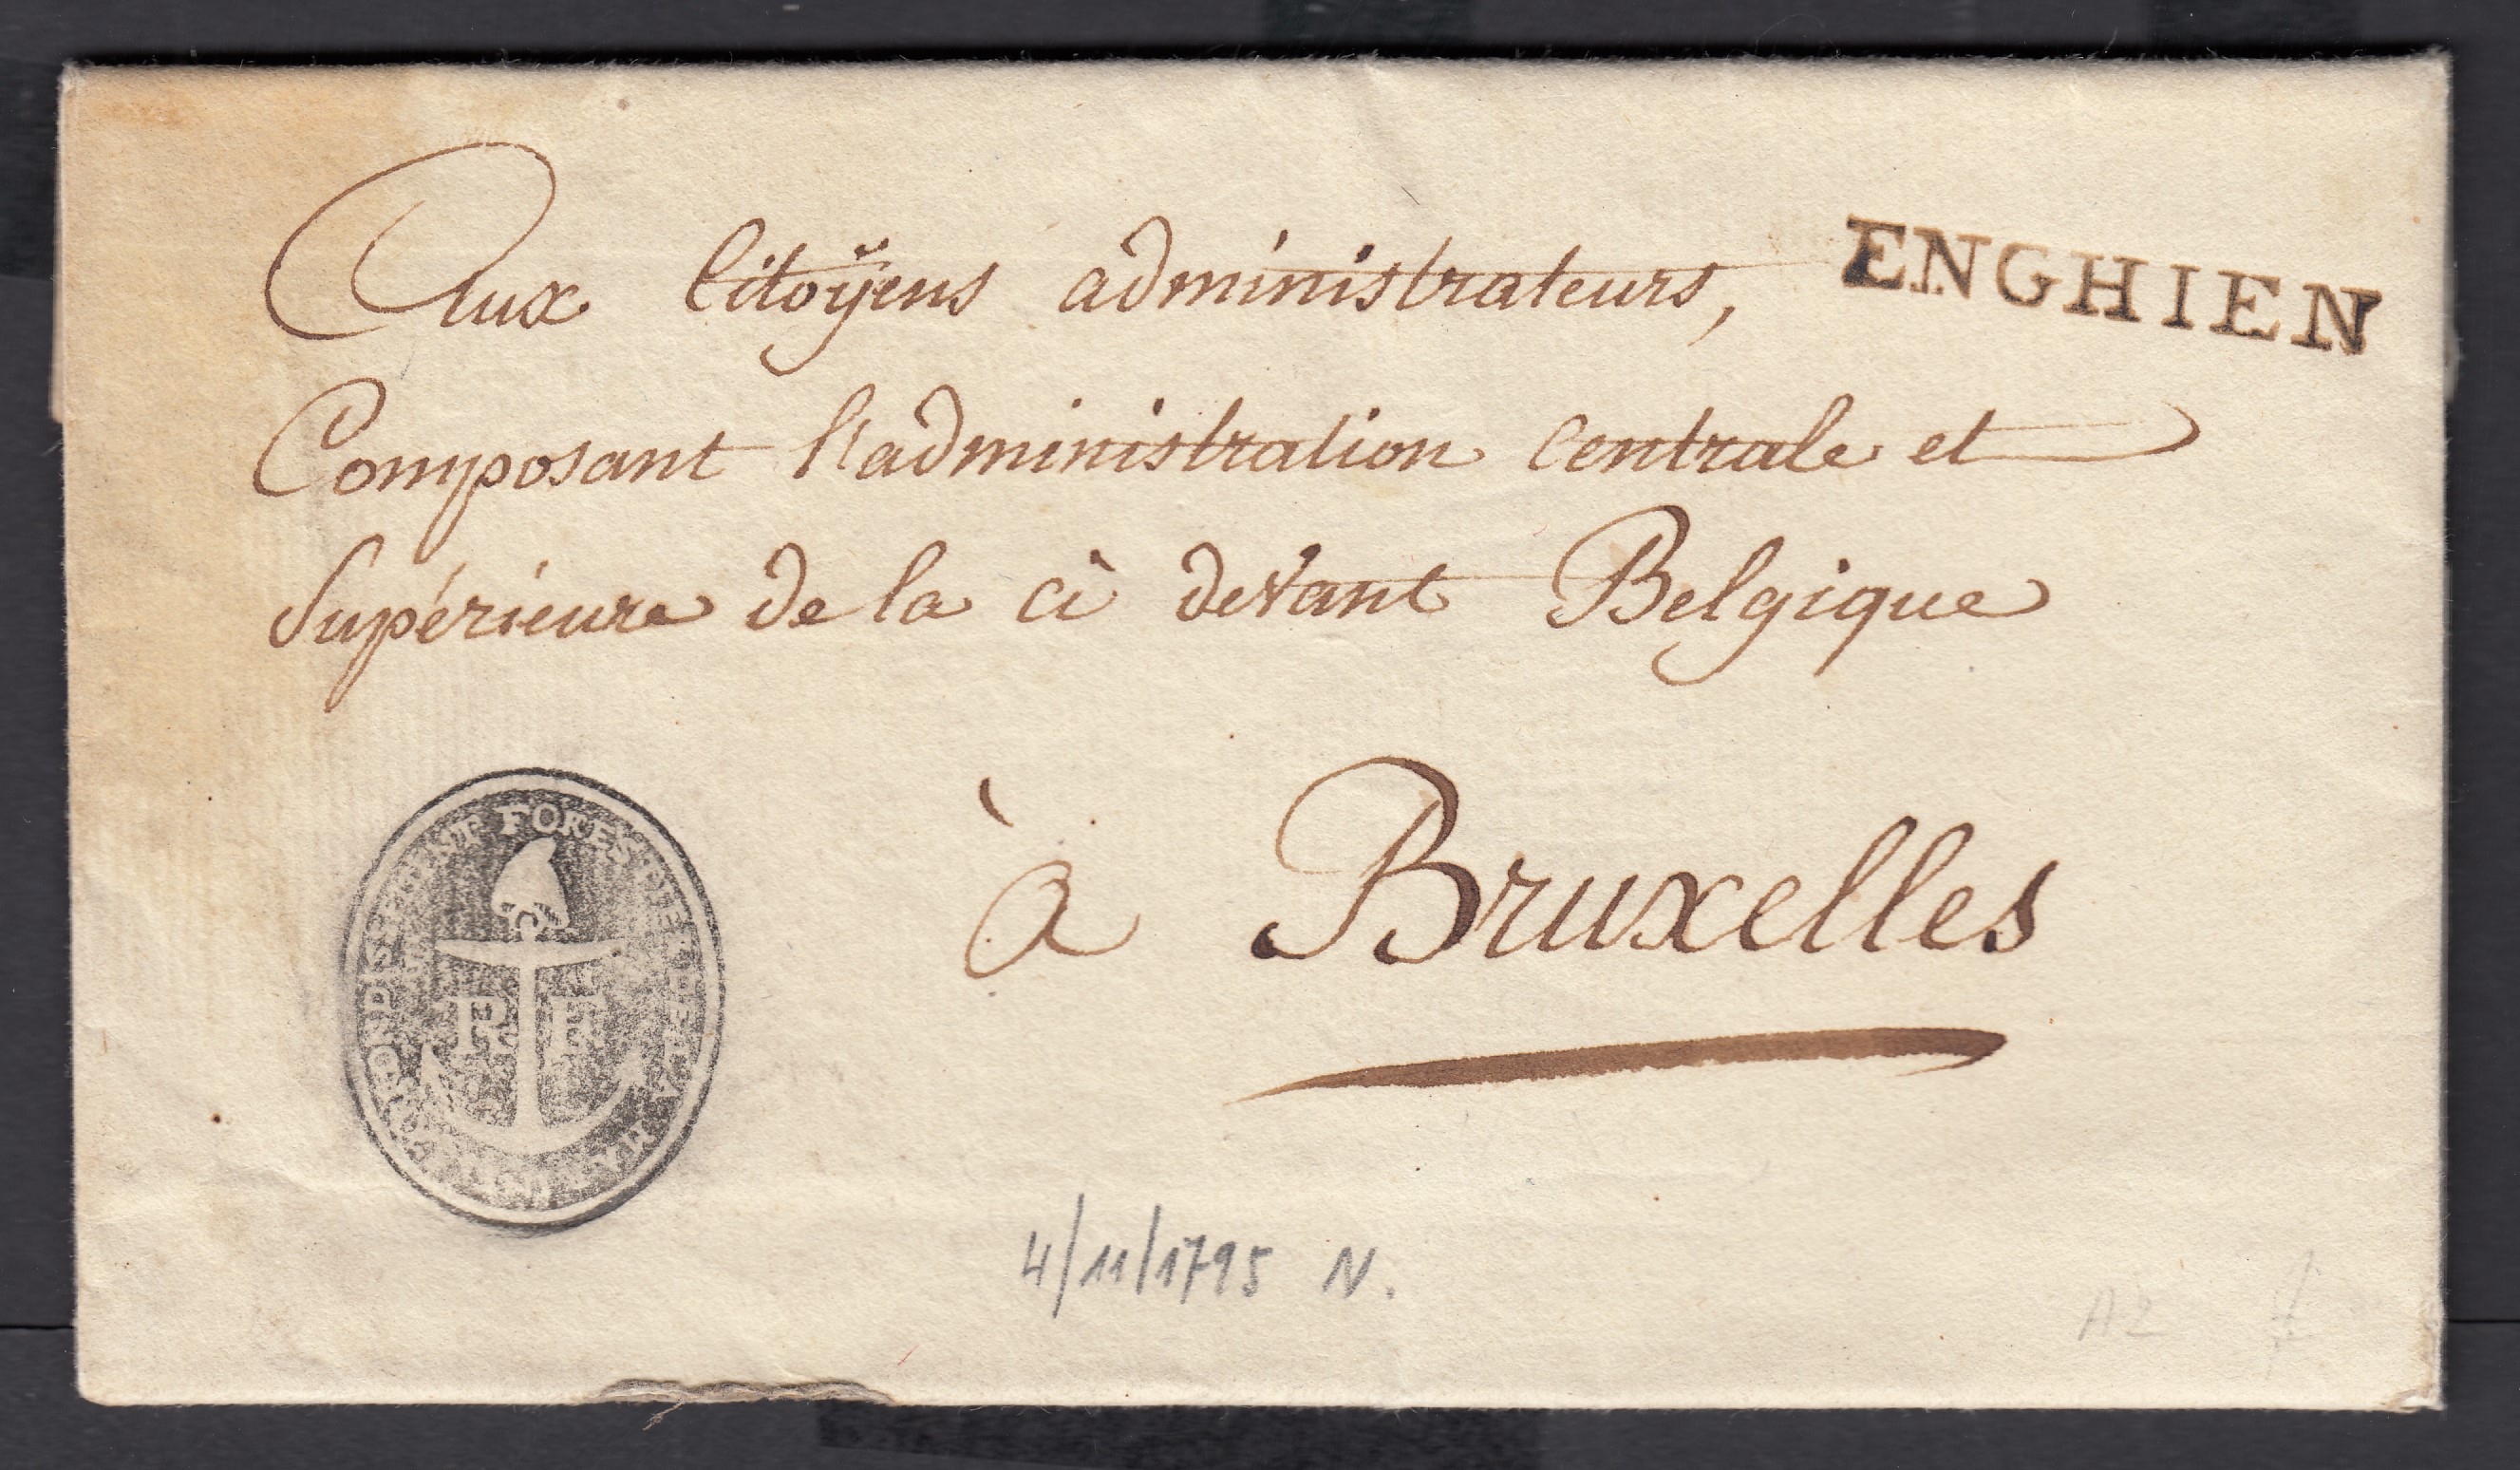 Aux Citoÿens administrateurs,
ENGHIEN
Composant l'administration Centrale et
Supérieure de la ci devant Belgique
à Bruxelles
FORES
R F
4/11/1795 N.
A2